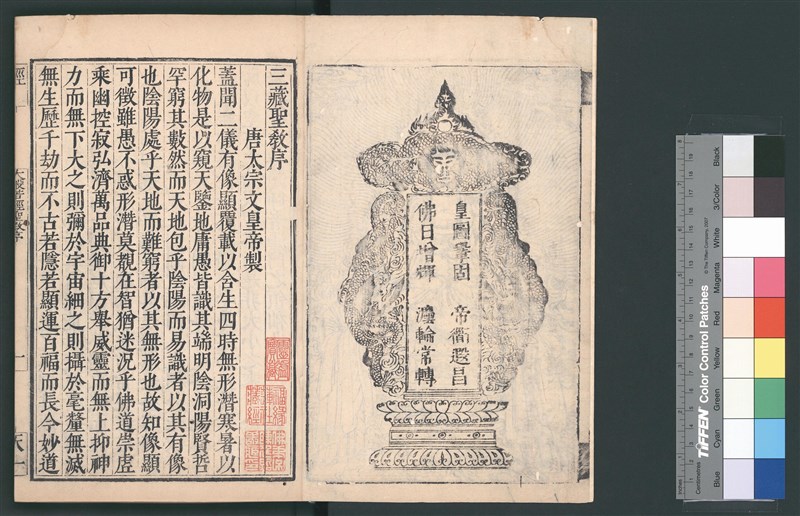 皇圖鞏固　帝衢遐昌
佛日增輝　灋輪常轉
三藏聖教序
唐太宗文皇帝製
蓋聞二儀有像顯覆載以含生四時無形潛寒暑以
化物是以窺天鑒地庸愚皆識其端明陰洞陽賢哲
罕窮其數然而天地包乎陰陽而易識者以其有像
也陰陽處乎天地而難窮者以其無形也故知像顯
可徵雖愚不惑形潛莫覩在智猶迷況乎佛道崇虛
乘幽控寂弘濟萬品典御十方舉威靈而無上抑神
力而無下大之則彌於宇宙細之則攝於毫釐無滅
無生歷千劫而不古若隱若顯運百福而長今妙道
經　大般若經聖教序　一　天一
TIFFEN Color Control Patches
© The Tiffen Company, 2007
Centimetres
Inches
Blue
Cyan
Green
Yellow
Red
Magenta
White
3/Color
Black